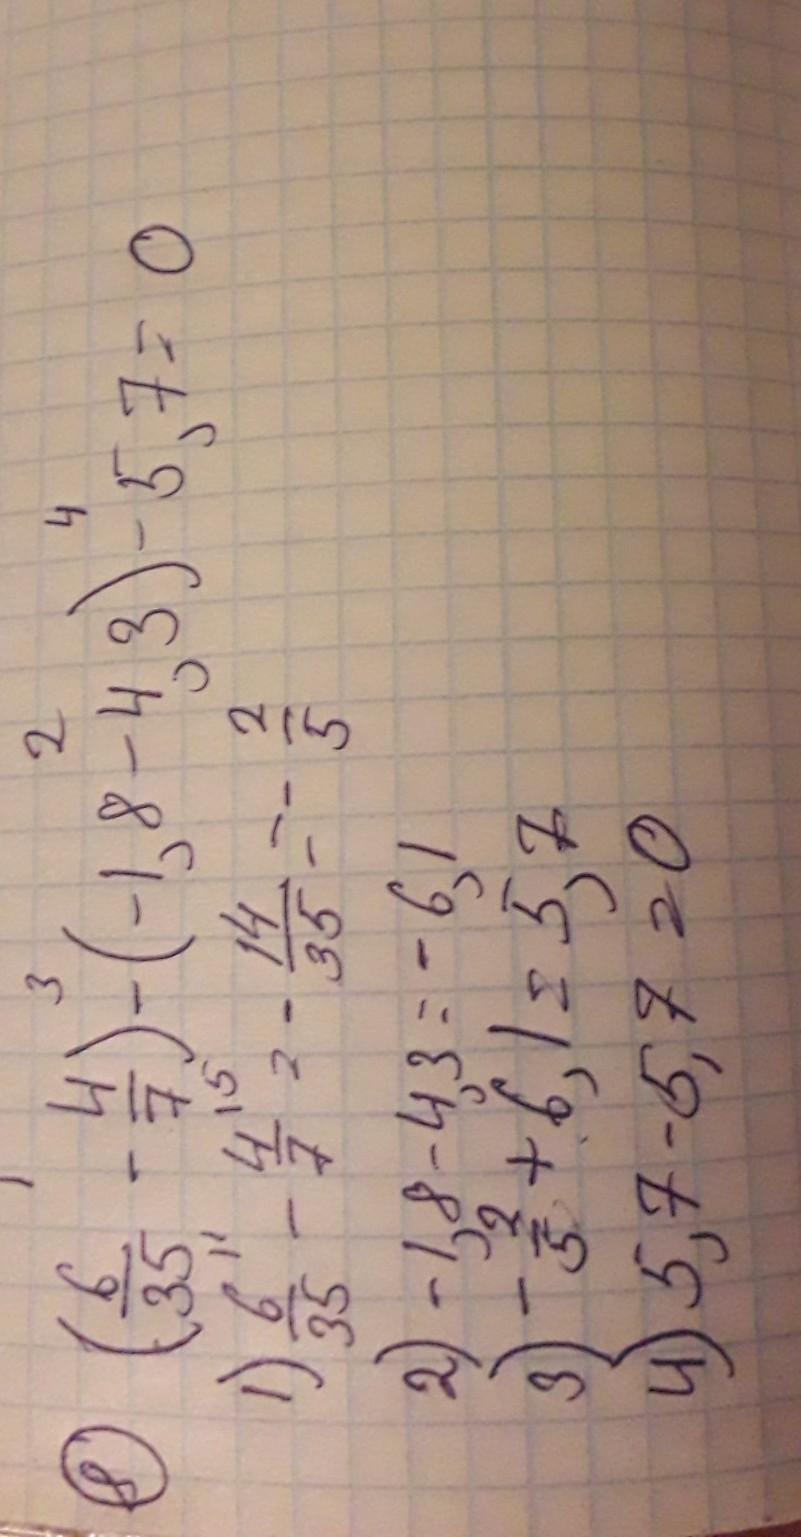 1 3 2 4
8 (6/35 - 4/7) - (-1,8 - 4,3) - 5,7 = 0
1) 6/35 - 4/7 = - 14/35 = - 2/5
2) -1,8 - 4,3 = - 6,1
3) - 2/5 + 6,1 = 5,7
4) 5,7 - 5,7 = 0